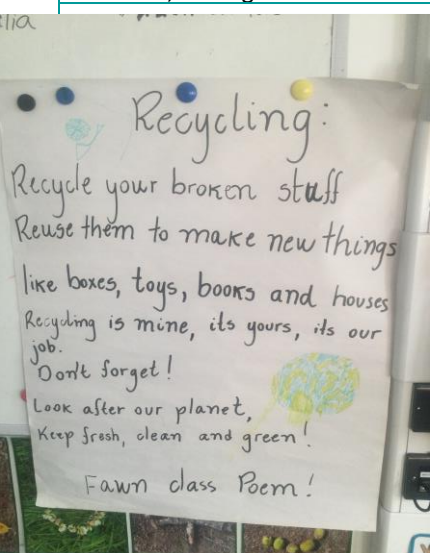 lia
Recycling:
Recycle your broken stuff
Reuse them to make new things
like boxes, toys, books and houses
Recycling is mine, its yours, its our
job.
Don't forget!
Look after our planet,
Keep fresh, clean and green!
Fawn class Poem!